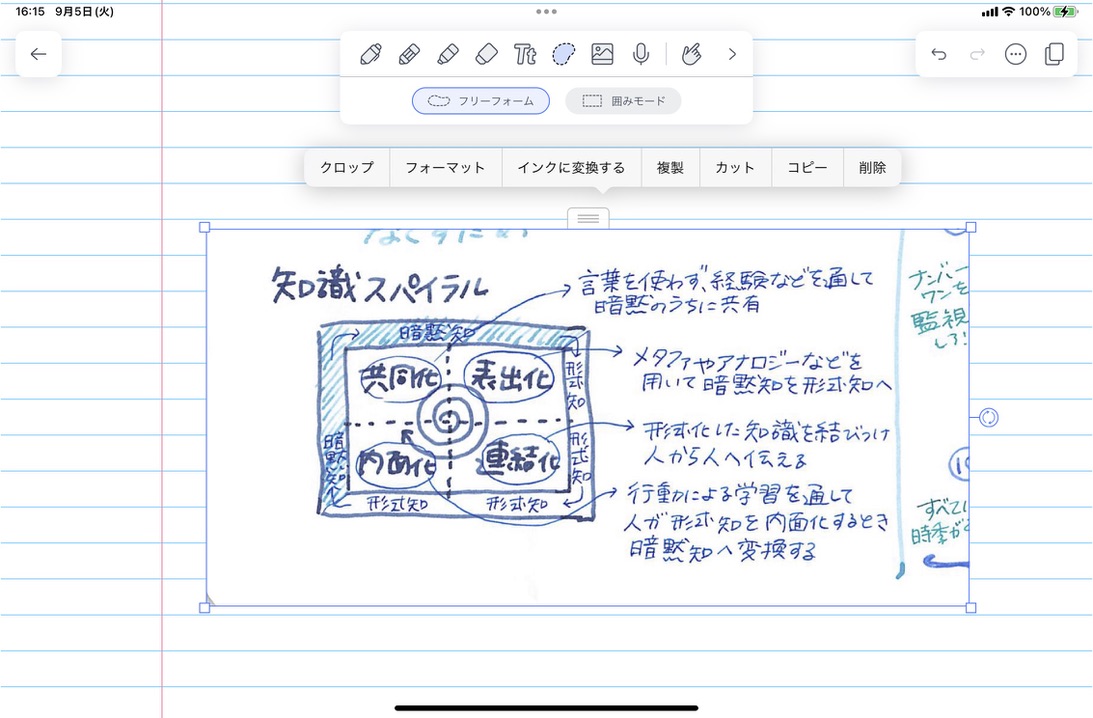 16:15 9月5日(火)
100%
Tt
フリーフォーム
囲みモード
クロップ
フォーマット
インクに変換する
複製
カット
コピー
削除
なくすため
知識スパイラル
言葉を使わず、経験などを通して
暗黙のうちに共有
暗黙知
共同化
表出化
形式知
メタファやアナロジーなどを
用いて暗黙知を形式知へ
暗黙知
内面化
連結化
形式知
形式化した知識を結びつけ
人から人へ伝える
形式知
形式知
行動による学習を通して
人が形式知を内面化するとき
暗黙知へ変換する
ナンバー
ワンを
監視
しろ!
すべて
時季が